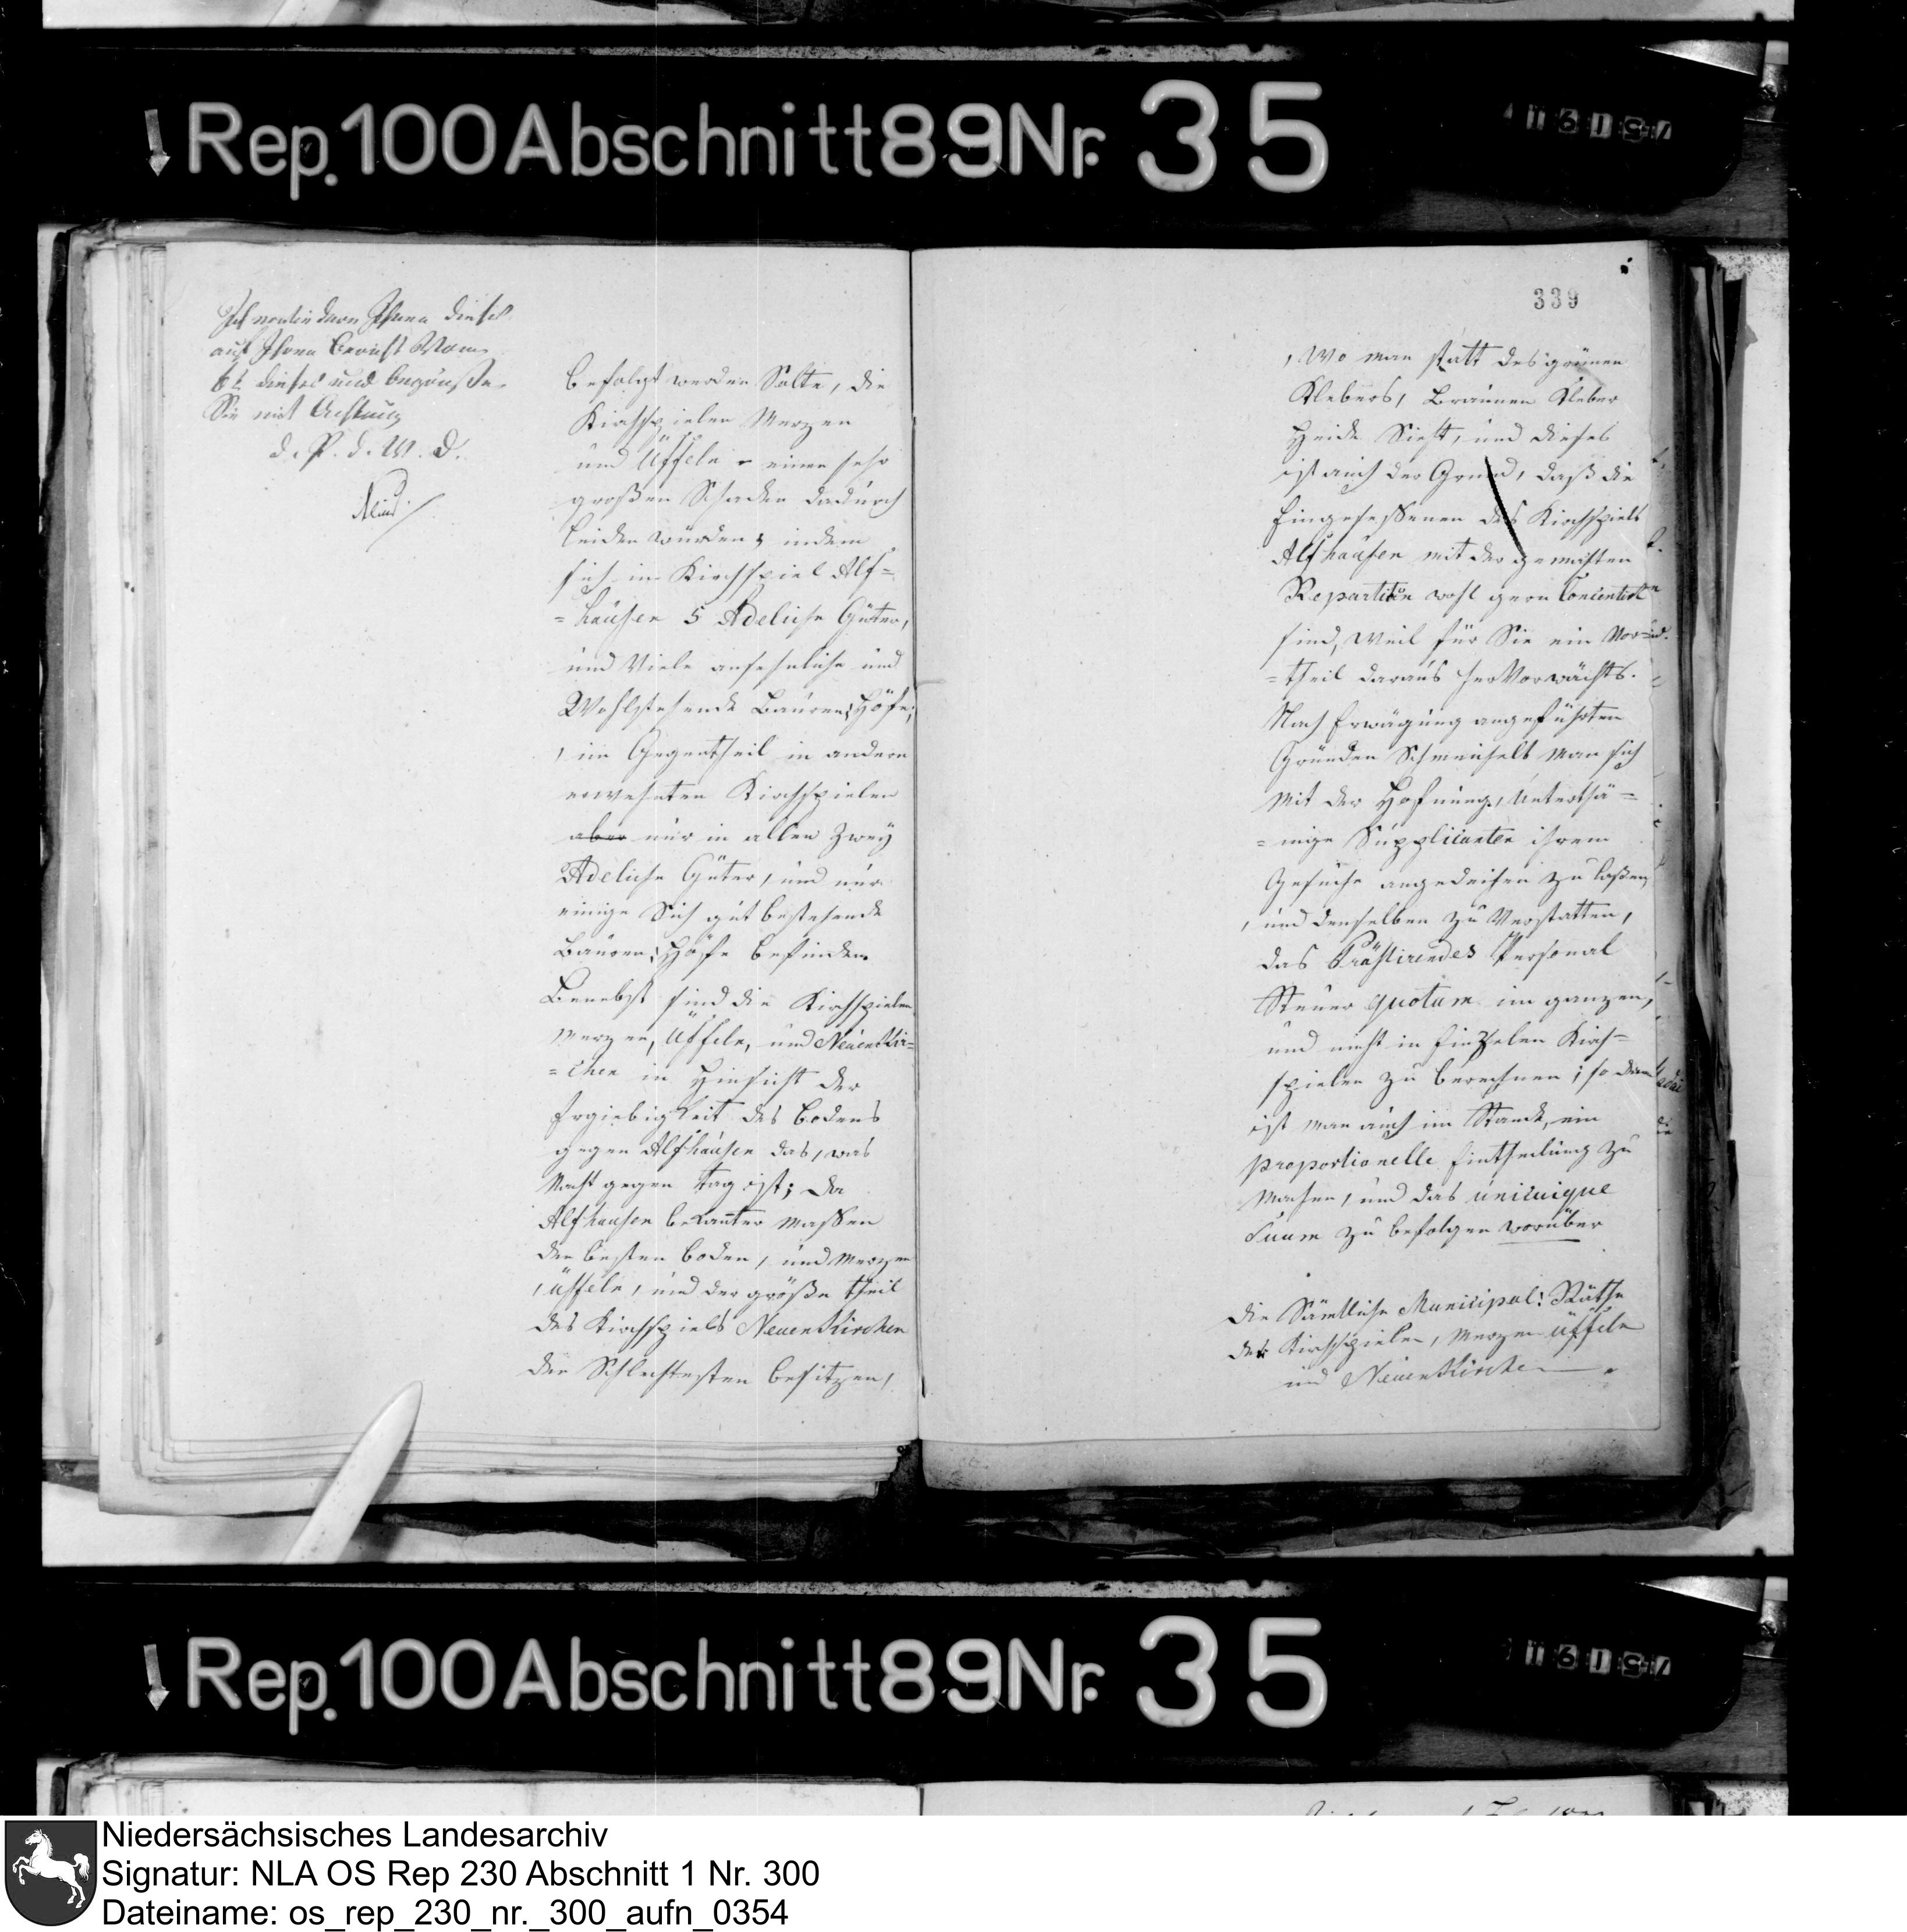 Rep. 100 Abschnitt 89 Nr. 35
Ihnen dieses
auf Ihren Bericht vom
dieses und begrüße
Sie mit Achtung
d. P. d. W. D.
befolgt werden Solte, die
Kirchspielen Merzen
und Üffeln einen sehr
großen Schaden dadurch
leiden würden; indem
sich im Kirchspiel Alf=
=hausen 5 Adeliche Güter,
und Viele ansehnliche und
Wohlstehende Bauren Höfe;
, im Gegentheil in andern
erwehnten Kirchspielen
aber nur in allen Zwey
Adeliche Güter, und nur
einige Sich gut bestehende
Bauren Höfe befinden
Benebst sind die Kirchspielen
Merzen, Üffeln, und Neuenkir=
=chen in Hinsicht der
Ergiebigkeit des Bodens
gegen Alfhausen das, was
Nacht gegen Tag ist; da
Alfhausen bekanter massen
den besten boden, und Merzen
, üffeln, und der größte theil
des Kirchspiels Neuenkirchen
den Schlechtesten besitzen,
339
, Wo man statt des grünen
Klebers, Braunen Kleber
Heide Sieht, und dieses
ist auch der Grund, daß die
Eingesessenen des Kirchspiels
Alfhausen mit der gemachten
Repartition wohl gern
sind, weil für Sie ein Vor=
=theil daraus herVorwächts.
Nach Erwägung angeführten
Gründen Schmeichelt man sich
mit der Hofnung, Unterthä=
=nige Supplicanten ihrem
Gesuche angedeihen zu laßen,
, und denselben zu Verstatten,
das Prästirendes Personal
Steuer quotum im ganzen,
und nicht in Einzelen Kirch=
spielen zu berechnen; so dann
ist man auch im Stande, ein
proportionelle Eintheilung zu
machen, und das unicuique
Suum zu befolgen worüber
die Sämtliche Municipal: Räthe
der Kirchspielen, Merzen üffeln
und Neuenkirchen
Rep. 100 Abschnitt 89 Nr. 35
Niedersächsisches Landesarchiv
Signatur: NLA OS Rep 230 Abschnitt 1 Nr. 300
Dateiname: os_rep_230_nr._300_aufn_0354